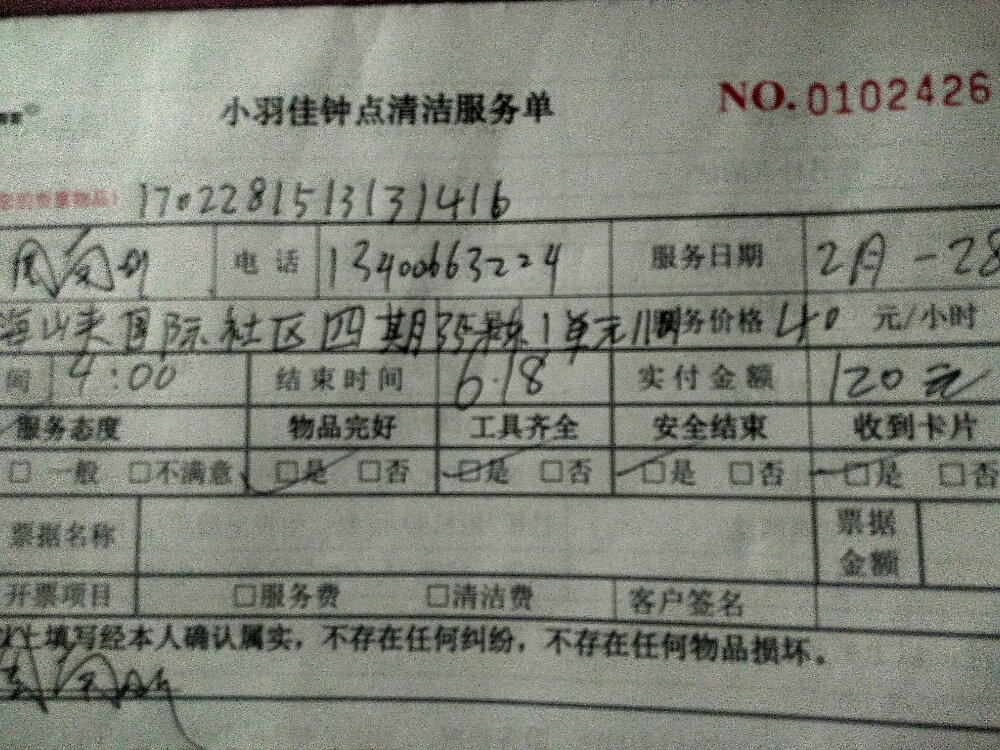 小羽佳钟点清洁服务单 NO. 0102426
贵重物品） 1702281513131416
电话 13400663224 服务日期 2月-28
国际社区四期 1单元 服务价格 40 元/小时
间 4:00 结束时间 6.18 实付金额 120元
服务态度 物品完好 工具齐全 安全结束 收到卡片
□ 一般 □不满意 □是 □否 □是 □否 □是 □否 □是 □否
票据名称 票据金额
开票项目 □服务费 □清洁费 客户签名
以上填写经本人确认属实，不存在任何纠纷，不存在任何物品损坏。